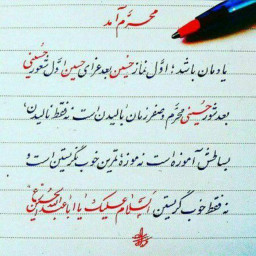 محرّم آمد
یادمان باشد؛ اوّل نماز حسین بعد عزای حسین اوّل شعور حسینی
بعد شور حسینی محرّم و صفر زمان بالیدن است نه فقط نالیدن
بساطش آموزه است نه موزه تمرین خوب نگریستن است و
نه فقط خوب گریستن السّلام علیک یا اباعبدالله الحسین ع